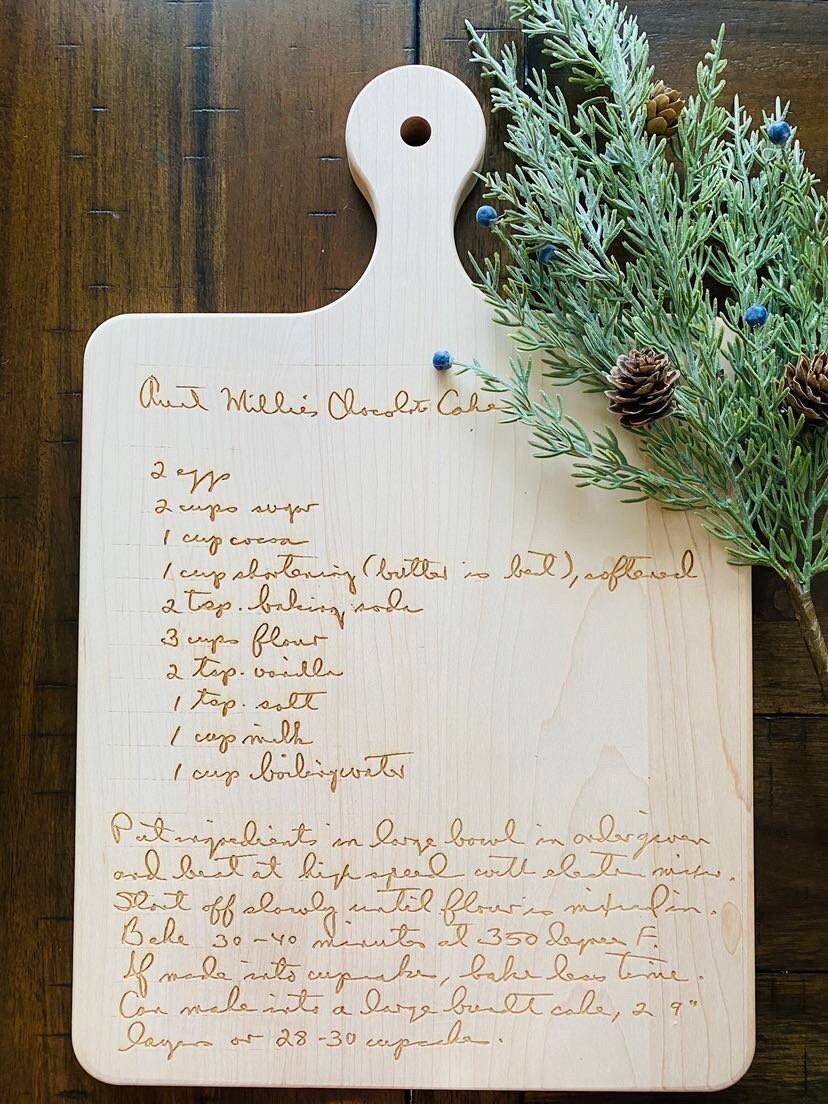 Aunt Millie's Chocolate Cake
2 eggs
2 cups sugar
1 cup cocoa
1 cup shortening (butter is best), softened
2 tsp. baking soda
3 cups flour
2 tsp. vanilla
1 tsp. salt
1 cup milk
1 cup boiling water
Put ingredients in large bowl in order given
and beat at high speed with electric mixer.
Start off slowly until flour is mixed in.
Bake 30-40 minutes at 350 degrees F.
If made into cupcakes, bake less time.
Can make into a large bundt cake, 2 9"
layers or 28-30 cupcakes.